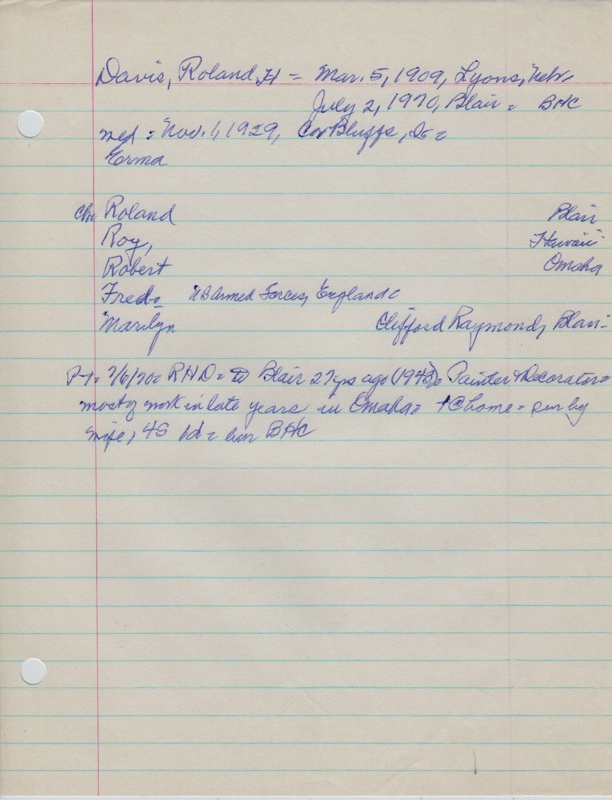 Davis, Roland H = Mar. 5, 1909, Lyons, Nebr.
July 2, 1970, Blair = BHC
med = Nov. 1, 1929, Co Bluffs, Ia =
Erma
Ch: Roland Blair
Roy, Hawaii
Robert Omaha
Fred = US Armed Forces, England =
Marilyn Clifford Raymond, Blair =
P-T = 7/6/70 = RHD = to Blair 27 yrs ago (1943) = Painter & Decorator =
most of work in late years in Omaha = + @ home = sur by
wife, 4S 1d = bur BHC